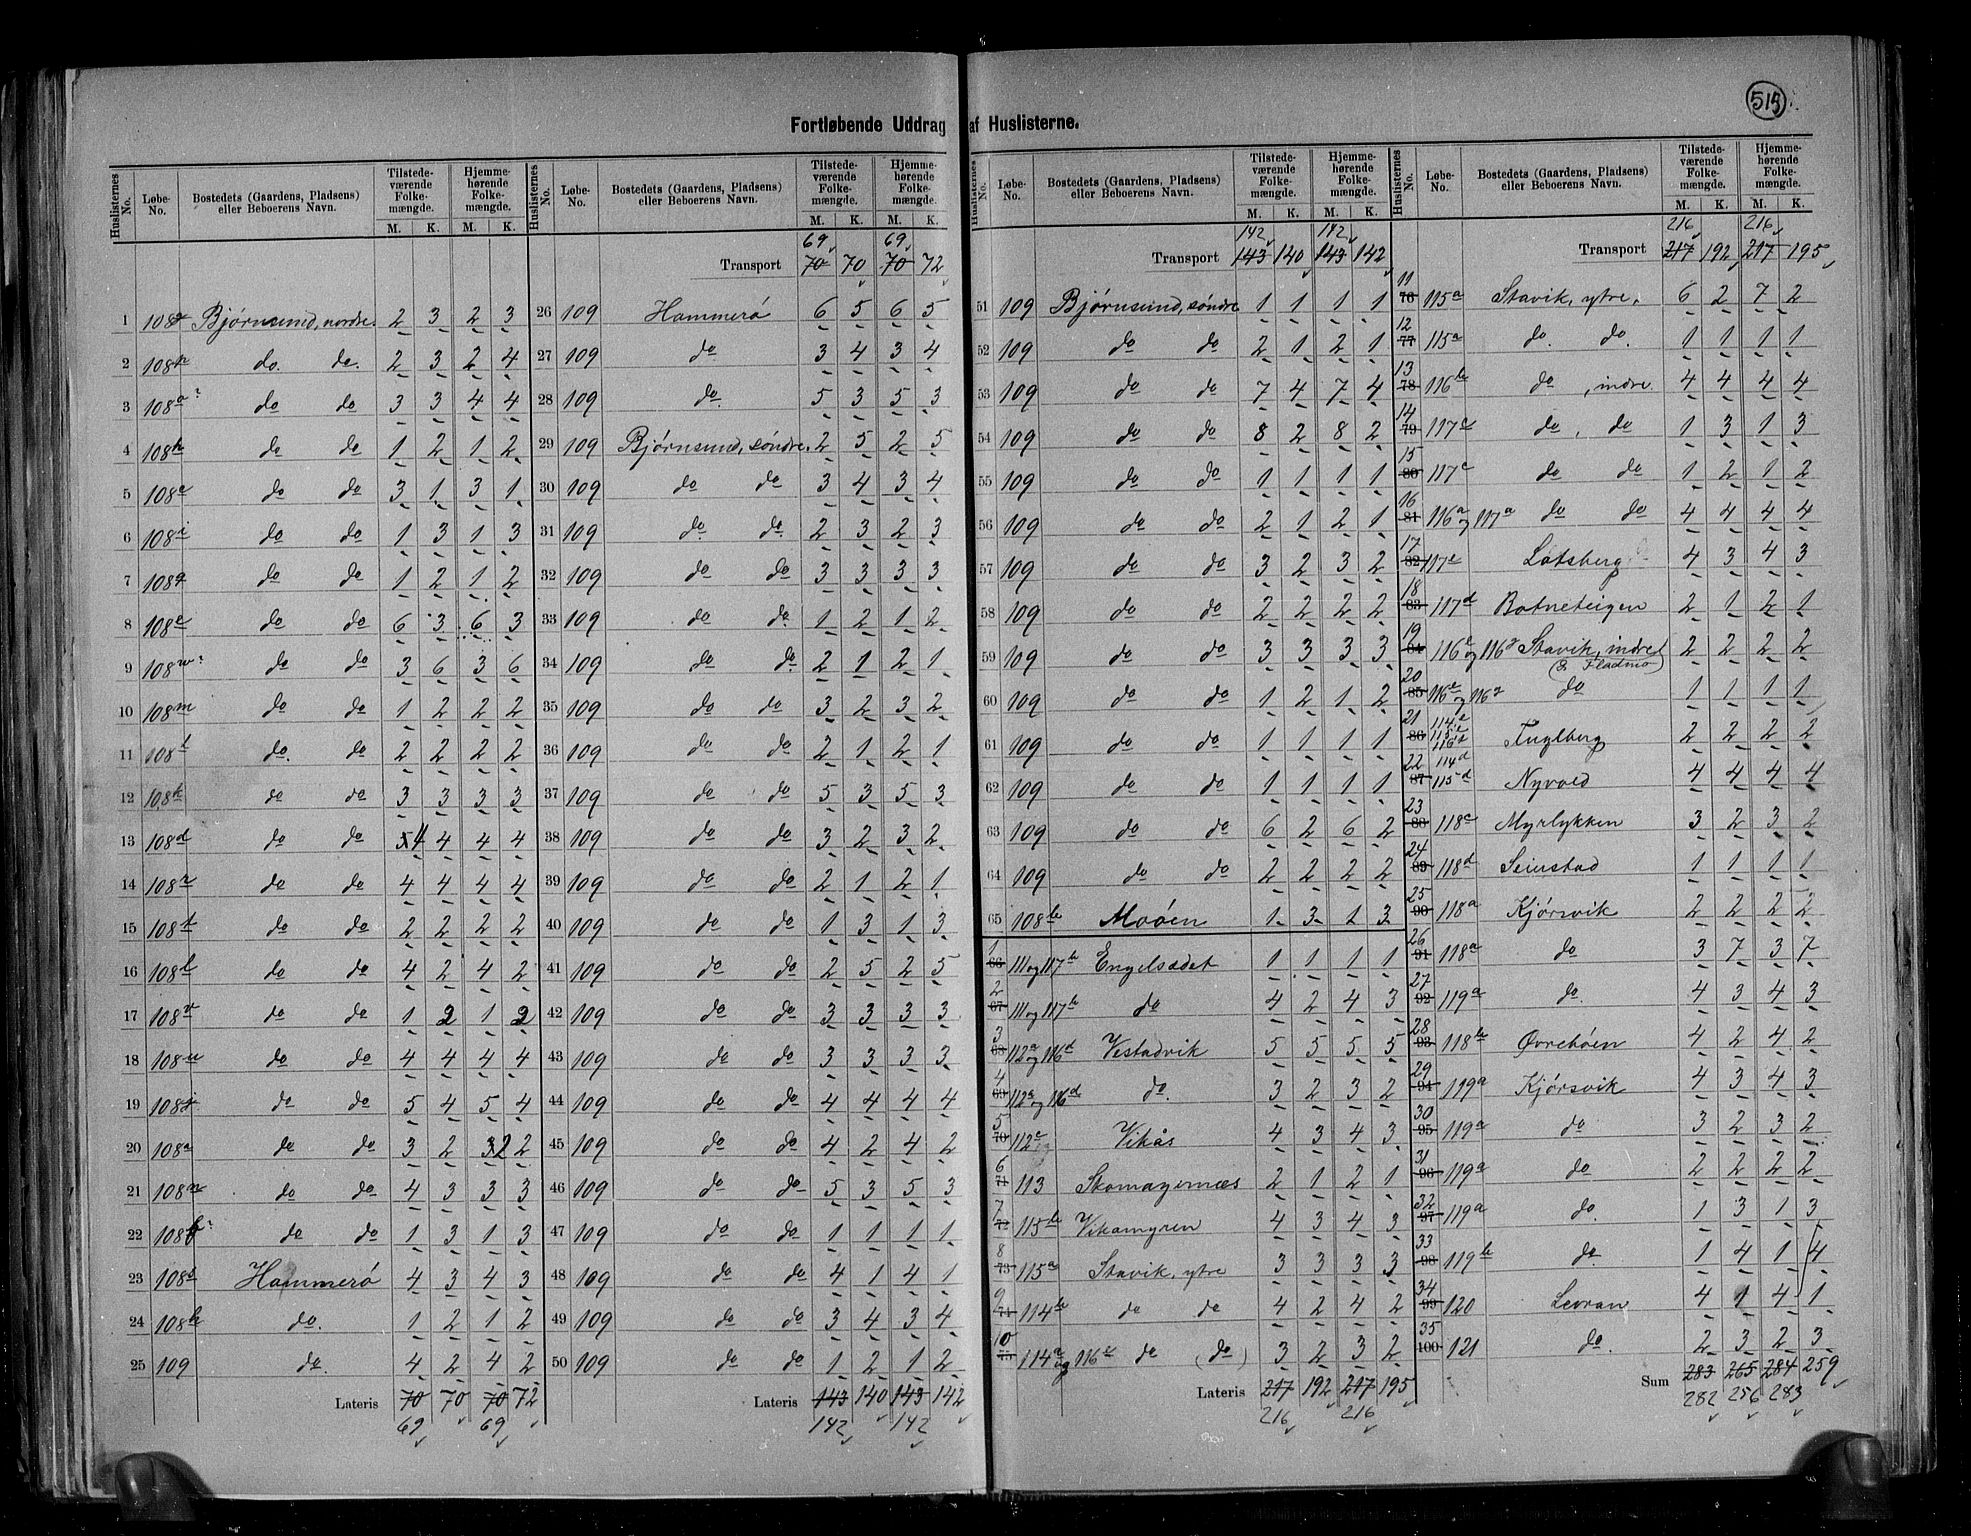 515
Fortløbende Uddrag af Huslisterne.
Huslisternes No. Løbe-No. Bostedets (Gaardens, Pladsens) eller Beboerens Navn. Tilstedeværende Folkemængde. M. K. Hjemmehørende Folkemængde. M. K.
1 108 Bjørnsund, nordre. 2 3 2 3
2 108 do. do. 2 3 2 4
3 108 do do 3 3 4 4
4 108 do do 1 2 1 2
5 108 do do 3 1 3 1
6 108i do do 1 3 1 3
7 108q do do 1 2 1 2
8 108e do do 6 3 6 3
9 108w? do do 3 6 3 6
10 108m do do 1 2 2 2
11 108 do. do 2 2 2 2
12 108k do do 3 3 3 3
13 108d do do 5 4 4 4 4
14 108r do do 4 4 4 4
15 108t do do 2 2 2 2
16 108l do do 4 2 4 2
17 108v do do 1 2 1 2
18 108u do do 4 4 4 4
19 108 do do 5 4 5 4
20 108a do do 3 2 3 2 2
21 108n do do 4 3 3 3
22 108 do do 1 3 1 3
23 108s Hammerö 4 3 4 3
24 108 do. 1 2 1 2
25 109 do. 4 2 4 2
Lateris 70 70 70 72
69 69
Huslisternes No. Løbe-No. Bostedets (Gaardens, Pladsens) eller Beboerens Navn. Tilstedeværende Folkemængde. M. K. Hjemmehørende Folkemængde. M. K.
69 69
Transport 70 70 70 72
26 109 Hammerö 6 5 6 5
27 109 do 3 4 3 4
28 109 do. 5 3 5 3
29 109 Bjørnsund, söndre. 2 5 2 5
30 109 do do 3 4 3 4
31 109 do do. 2 3 2 3
32 109 do do 3 3 3 3
33 109 do do 1 2 1 2
34 109 do do. 2 1 2 1
35 109 do do 3 2 3 2
36 109 do do 2 1 2 1
37 109 do do 5 3 5 3
38 109 do do 3 2 3 2
39 109 do do 2 1 2 1
40 109 do do 1 3 1 3
41 109 do do 2 5 2 5
42 109 do do 3 3 3 3
43 109 do do 3 3 3 3
44 109 do do 4 4 4 4
45 109 do do 4 2 4 2
46 109 do do 5 3 5 3
47 109 do do 1 1 1 1
48 109 do do 4 1 4 1
49 109 do do 3 4 3 4
50 109 do do 1 2 1 2
Lateris 143 140 143 142
142 142
Huslisternes No. Løbe-No. Bostedets (Gaardens, Pladsens) eller Beboerens Navn. Tilstedeværende Folkemængde. M. K. Hjemmehørende Folkemængde. M. K.
142 142
Transport 143 140 143 142
51 109 Bjørnsund, söndre 1 1 1 1
52 109 do do 2 1 2 1
53 109 do do 7 4 7 4
54 109 do do 8 2 8 2
55 109 do do 1 1 1 1
56 109 do do 2 1 2 1
57 109 do do 3 2 3 2
58 109 do do 2 2 2 2
59 109 do do 3 3 3 3
60 109 do do 1 2 1 2
61 109 do do 1 1 1 1
62 109 do do 1 1 1 1
63 109 do do 6 2 6 2
64 109 do do 2 2 2 2
65 108b Moöen 1 3 1 3
1 66 111 og 117b Engelsædet 1 1 1 1
2 67 111 og 117b do 4 2 4 3
3 68 112a og 116d Vestadvik 5 5 5 5
4 69 112a og 116d do. 3 2 3 2
5 70 112c Vikås 4 3 4 3
6 71 113 Skomagernæs 2 1 2 1
7 72 115b Vikamyren 4 3 4 3
8 73 115a Stavik, ytre 3 3 3 3
9 74 114b do do 4 2 4 2
10 75 114a og 116c do (do) 3 2 3 2
Lateris 217 192 217 195
216 216
Huslisternes No. Løbe-No. Bostedets (Gaardens, Pladsens) eller Beboerens Navn. Tilstedeværende Folkemængde. M. K. Hjemmehørende Folkemængde. M. K.
216 216
Transport 217 192 217 195
11 76 115a Stavik, ytre. 6 2 7 2
12 77 115a do. do. 1 1 1 1
13 78 116b do, indre. 4 4 4 4
14 79 117c do, do 1 3 1 3
15 80 117c do do 1 2 1 2
16 81 116a og 117a do do 4 4 4 4
17 82 117e Lotsberg 4 3 4 3
18 83 117d Botneteigen 2 1 2 1
19 84 116 og 116 Stavik, indre 2 2 2 2
(& Fladmo)
20 85 116 og 116 do 1 1 1 1
21 86 114e 115c 116d Fuglberg 2 2 2 2
22 87 114d 115d Nyvold 4 4 4 4
23 88 118c Myrlykken 3 2 3 2
24 89 118d Seinstad 1 1 1 1
25 90 118a Kjörsvik 2 2 2 2
26 91 118a do 3 7 3 7
27 92 119a do. 4 3 4 3
28 93 118b Øvreböen 4 2 4 2
29 94 119a Kjörsvik 4 3 4 3
30 95 119a do 3 2 3 2
31 96 119a do 2 2 2 2
32 97 119a do. 1 3 1 3
33 98 119b do. 1 4 1 4
34 99 120 Levran 4 1 4 1
35 100 121 do. 2 3 2 3
Sum 283 265 284 259
282 256 283